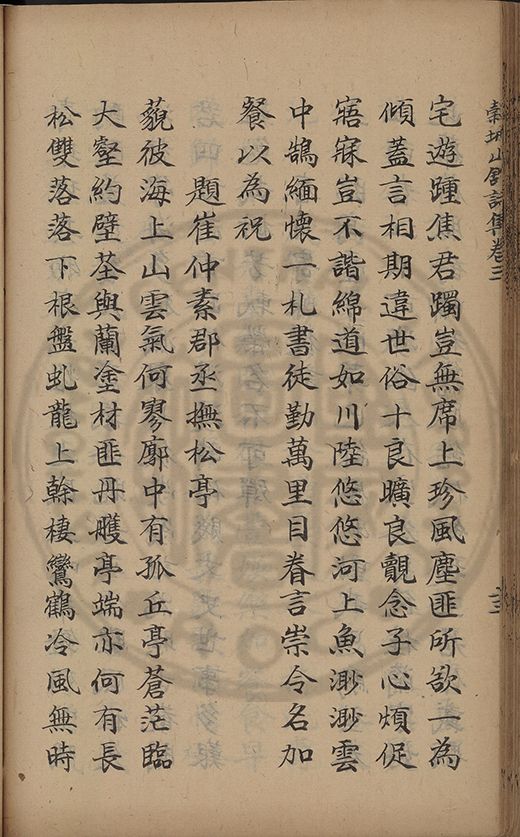 穀城山館詩集卷三
宅遊踵焦君躅豈無席上珍風塵匪所欲一為
傾蓋言相期違世俗十良曠良覿念子心煩促
寤寐豈不諧綿道如川陸悠悠河上魚渺渺雲
中鵠緬懷一札書徒勤萬里目眷言崇令名加
餐以為祝
題崔仲素郡丞撫松亭
藐彼海上山雲氣何寥廓中有孤丘亭蒼茫臨
大壑約壁荃與蘭塗材匪丹雘亭端亦何有長
松雙落落下根盤虬龍上幹棲鸞鶴冷風無時